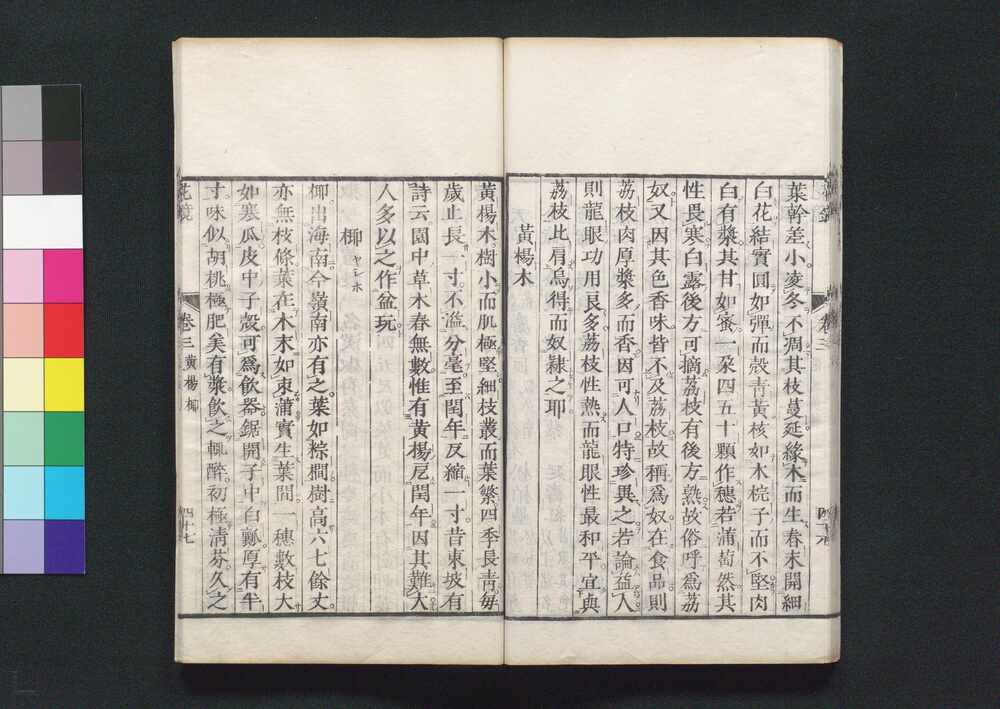 葉幹差小凌冬不凋其枝蔓延緣木而生春末開細
白花結實圓如彈而殼青黃核如木梡子而不堅肉
白有漿其甘如蜜一朶四五十顆作穗若蒲萄然其
性畏寒白露後方可摘荔枝有後方熟故俗呼為荔
奴又因其色香味皆不及荔枝故稱為奴在食品則
荔枝肉厚漿多而香因可人口特珍異之若論益人
則龍眼功用良多荔枝性熱而龍眼性最和平宜與
荔枝比肩烏得而奴隸之耶
黃楊木
黃楊木樹小而肌極堅細枝叢而葉繁四季長青每
歲止長一寸不溢分毫至閏年反縮一寸昔東坡有
詩云園中草木春無數惟有黃楊厄閏年因其難大
人多以之作盆玩
椰 ヤシホ
椰出海南今嶺南亦有之葉如棕櫚樹高六七餘丈
亦無枝條葉在木末如束蒲實生葉間一穗數枝大
如寒瓜皮中子殼可為飲器鋸開子中白瓤厚有半
寸味似胡桃極肥美有漿飲之輒醉初極清芬久之
花鏡 卷三 黃楊 椰 四十七